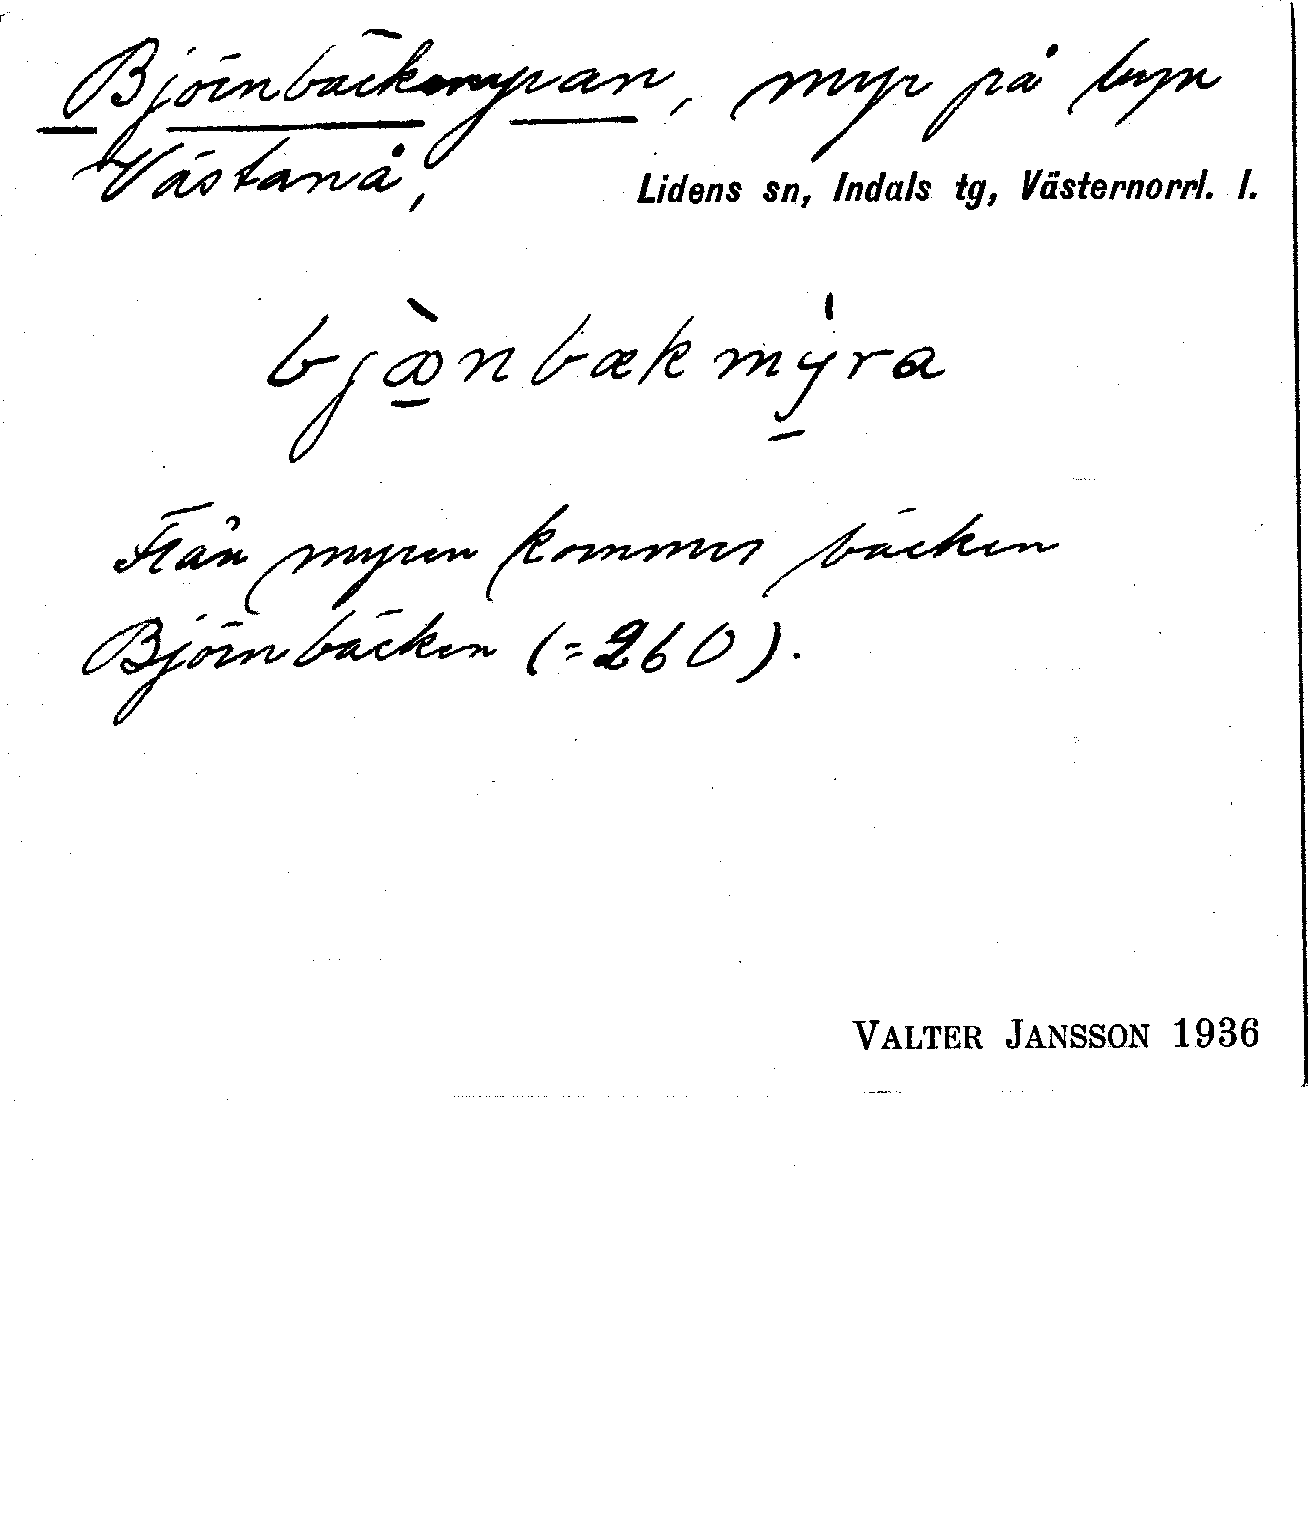 Björnbäckmyran, myr på byn
Västanå,
Lidens sn, Indals tg, Västernorrl. l.
bjæ̀nbækmýra
Från myren kommer bäcken
Björnbäcken (=260).
VALTER JANSSON 1936